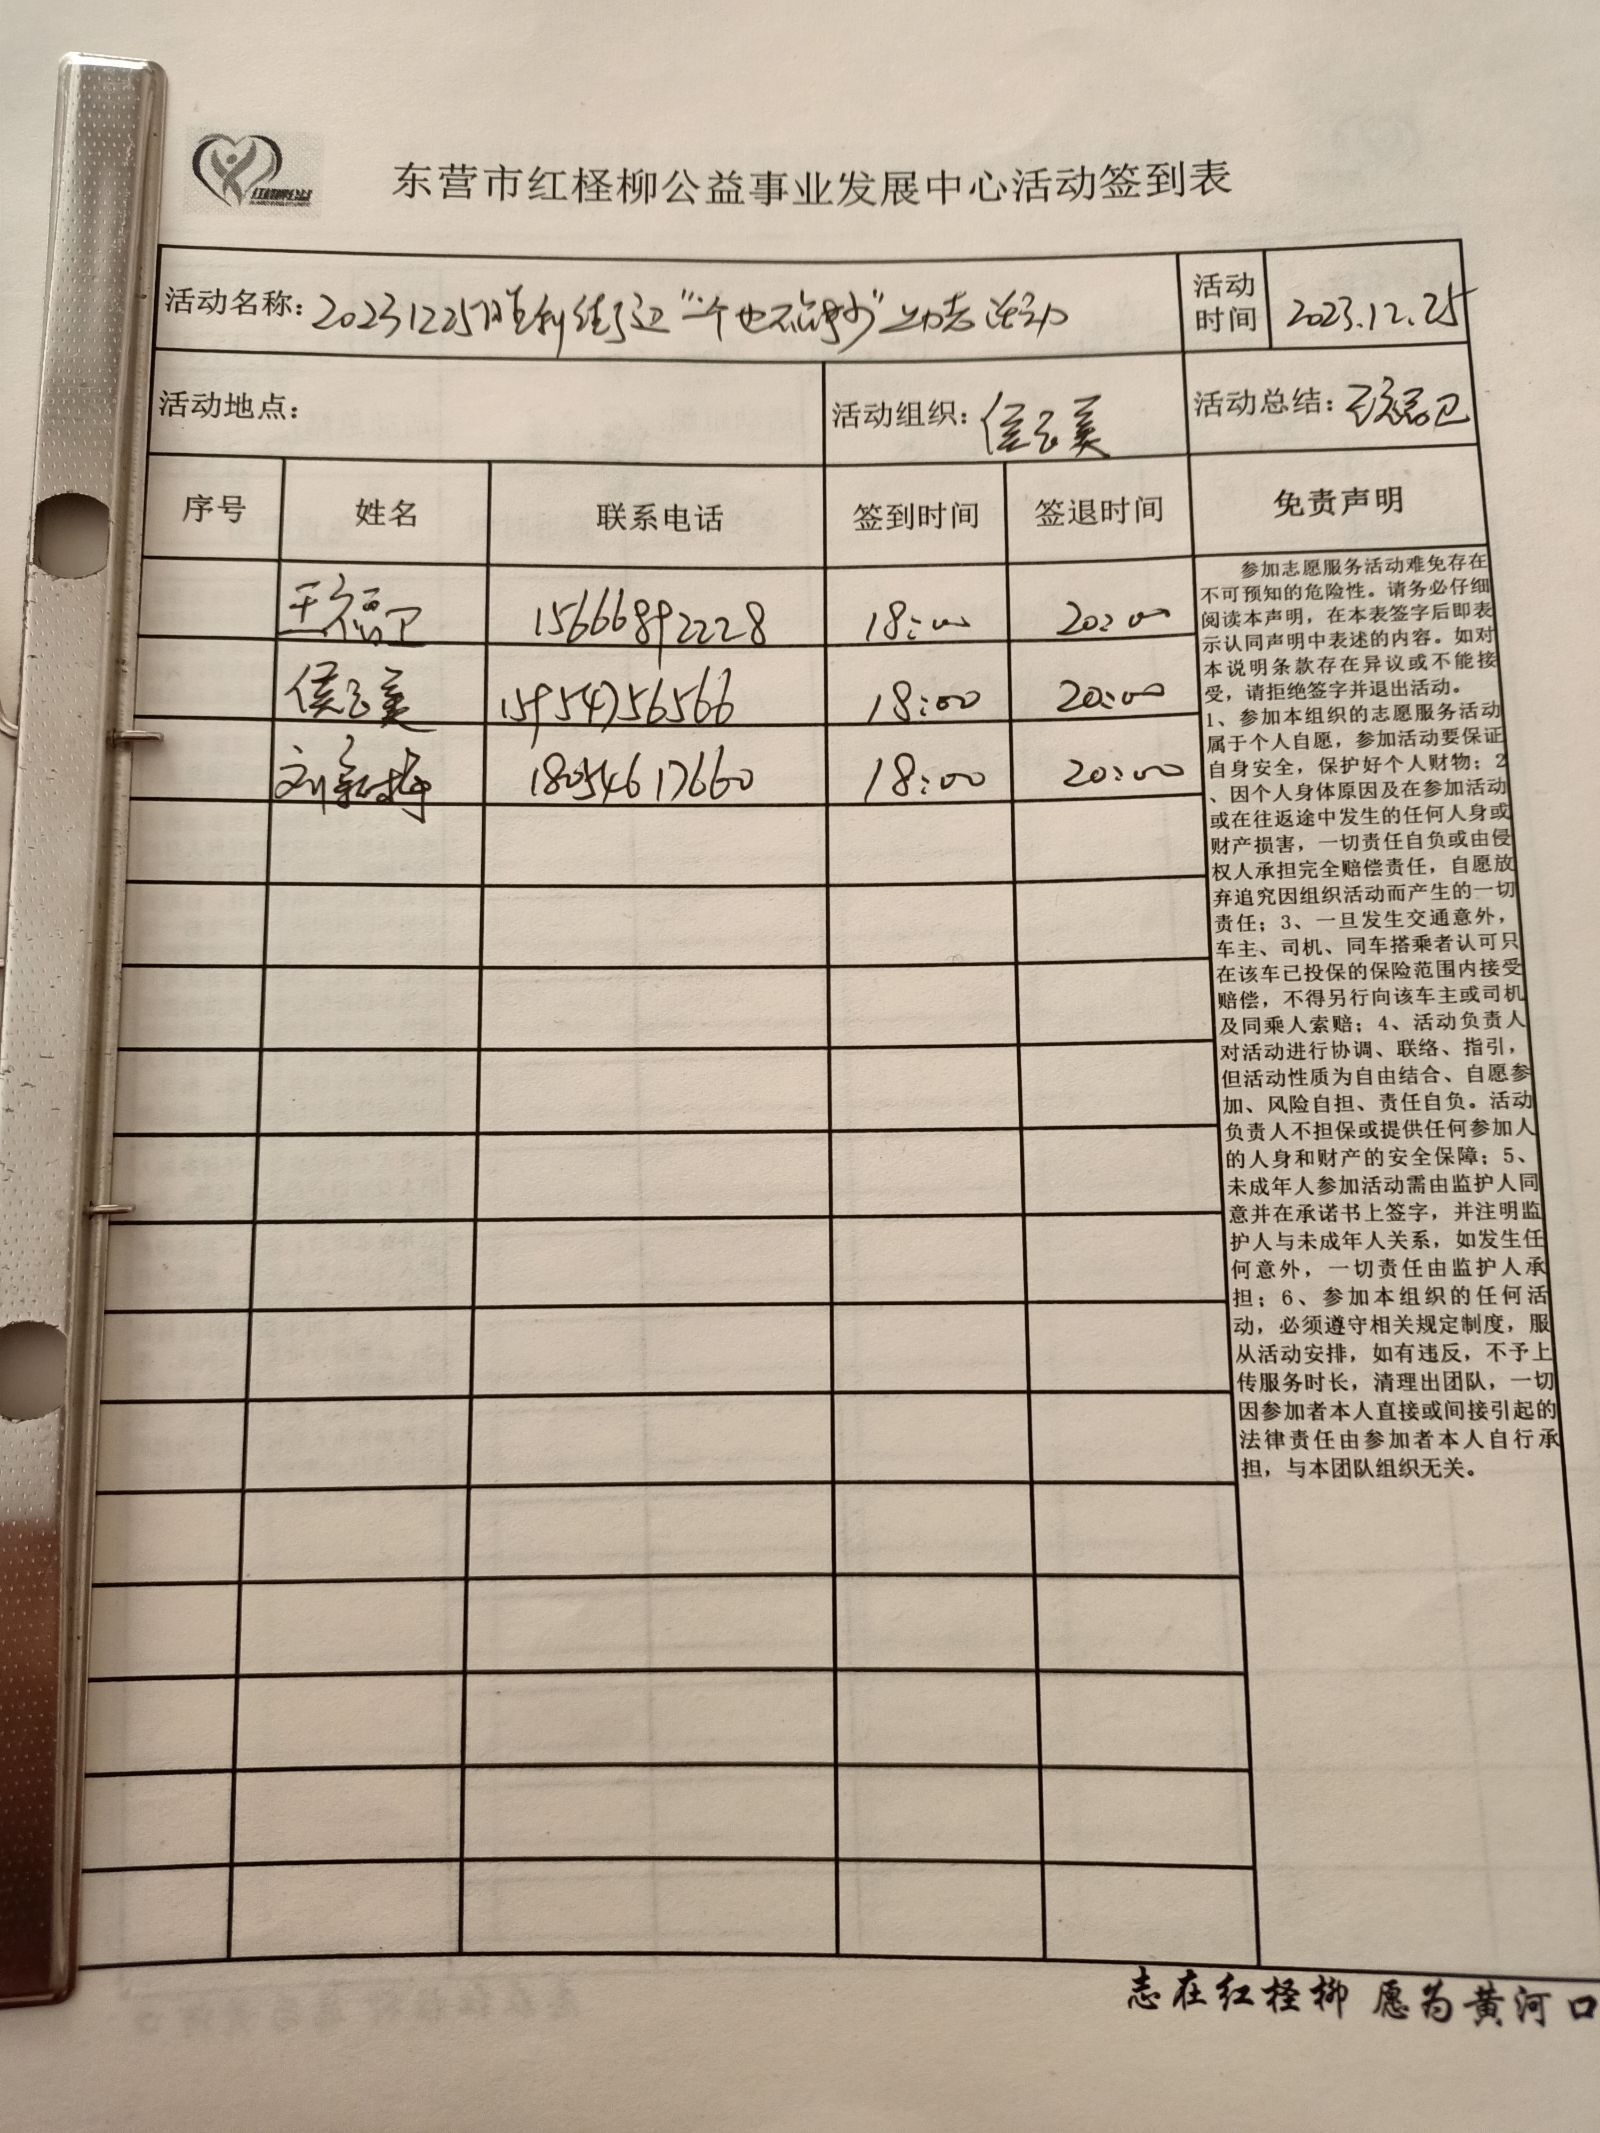 东营市红柽柳公益事业发展中心活动签到表
活动名称：20231225胜利街道“一个也不能少”励志活动
活动时间 2023.12.25
活动地点：
活动组织：侯玉美
活动总结：王福卫
序号 姓名 联系电话 签到时间 签退时间 免责声明
王福卫 15666892228 18:00 20:00
侯玉美 15954756566 18:00 20:00
刘新梅 18054617660 18:00 20:00
参加志愿服务活动难免存在
不可预知的危险性。请务必仔细
阅读本声明，在本表签字后即表
示认同声明中表述的内容。如对
本说明条款存在异议或不能接
受，请拒绝签字并退出活动。
1、参加本组织的志愿服务活动
属于个人自愿，参加活动要保证
自身安全，保护好个人财物；2
、因个人身体原因及在参加活动
或在往返途中发生的任何人身或
财产损害，一切责任自负或由侵
权人承担完全赔偿责任，自愿放
弃追究因组织活动而产生的一切
责任；3、一旦发生交通意外，
车主、司机、同车搭乘者认可只
在该车已投保的保险范围内接受
赔偿，不得另行向该车主或司机
及同乘人索赔；4、活动负责人
对活动进行协调、联络、指引，
但活动性质为自由结合、自愿参
加、风险自担、责任自负。活动
负责人不担保或提供任何参加人
的人身和财产的安全保障；5、
未成年人参加活动需由监护人同
意并在承诺书上签字，并注明监
护人与未成年人关系，如发生任
何意外，一切责任由监护人承
担；6、参加本组织的任何活
动，必须遵守相关规定制度，服
从活动安排，如有违反，不予上
传服务时长，清理出团队，一切
因参加者本人直接或间接引起的
法律责任由参加者本人自行承
担，与本团队组织无关。
志在红柽柳 愿为黄河口